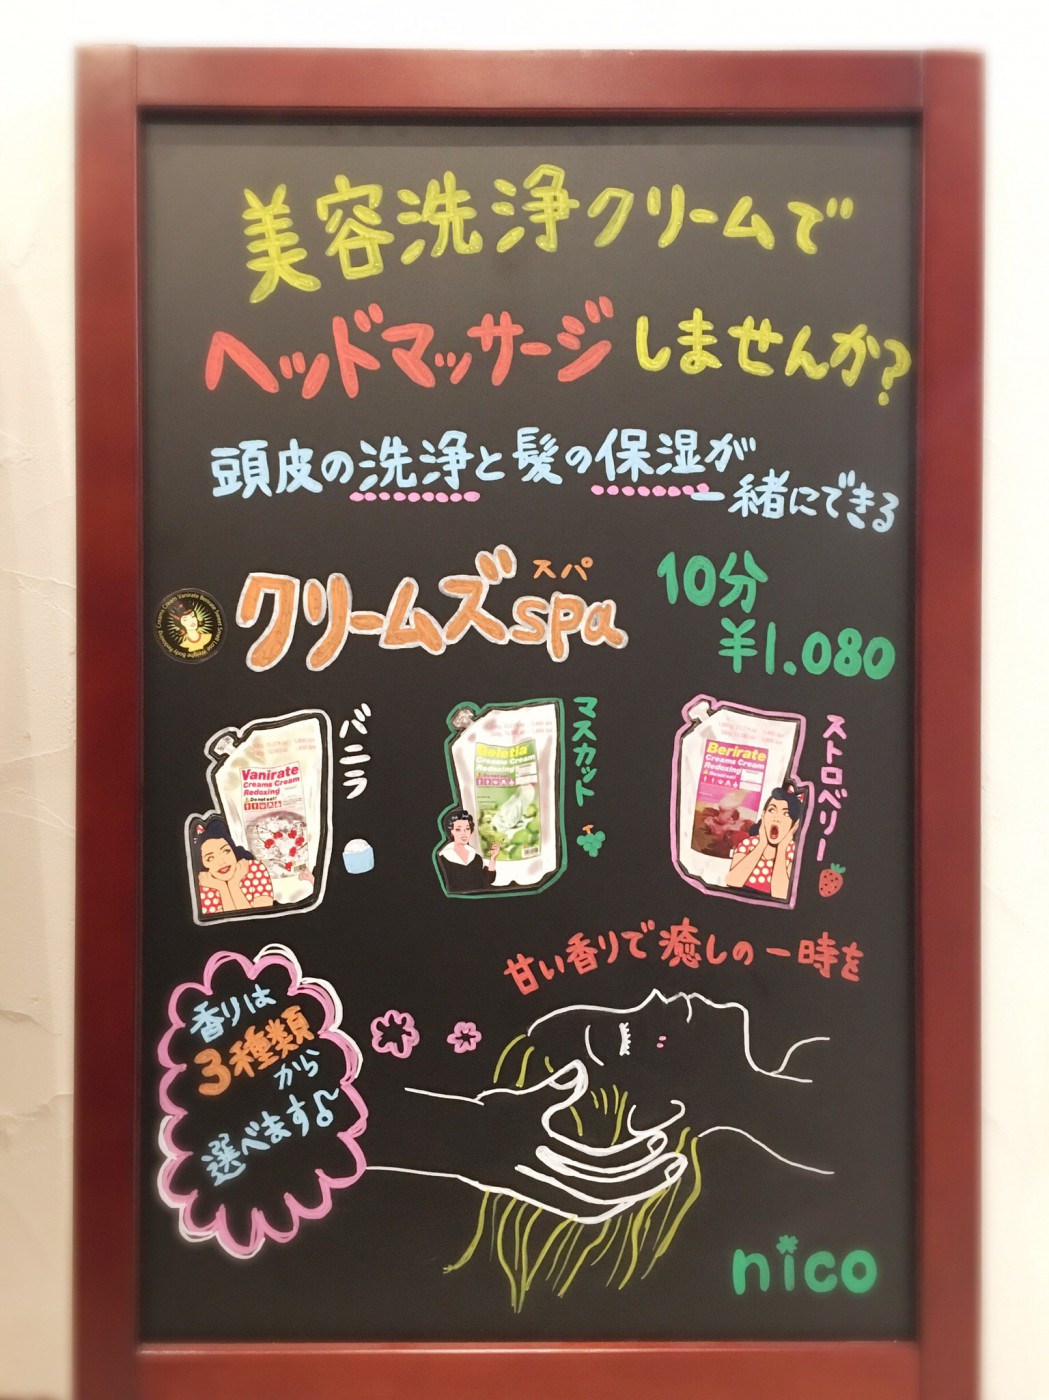 美容洗浄クリームで
ヘッドマッサージしませんか?
頭皮の洗浄と髪の保湿が
一緒にできる
スパ
クリームズspa
10分
¥1.080
バニラ
マスカット
ストロベリー
Vanirate
Creams Cream
Redoxing
Do not eat!
Deletia
Creams Cream
Redoxing
Berirate
Creams Cream
Redoxing
甘い香りで癒しの一時を
香りは
3種類
から
選べます♪
nico